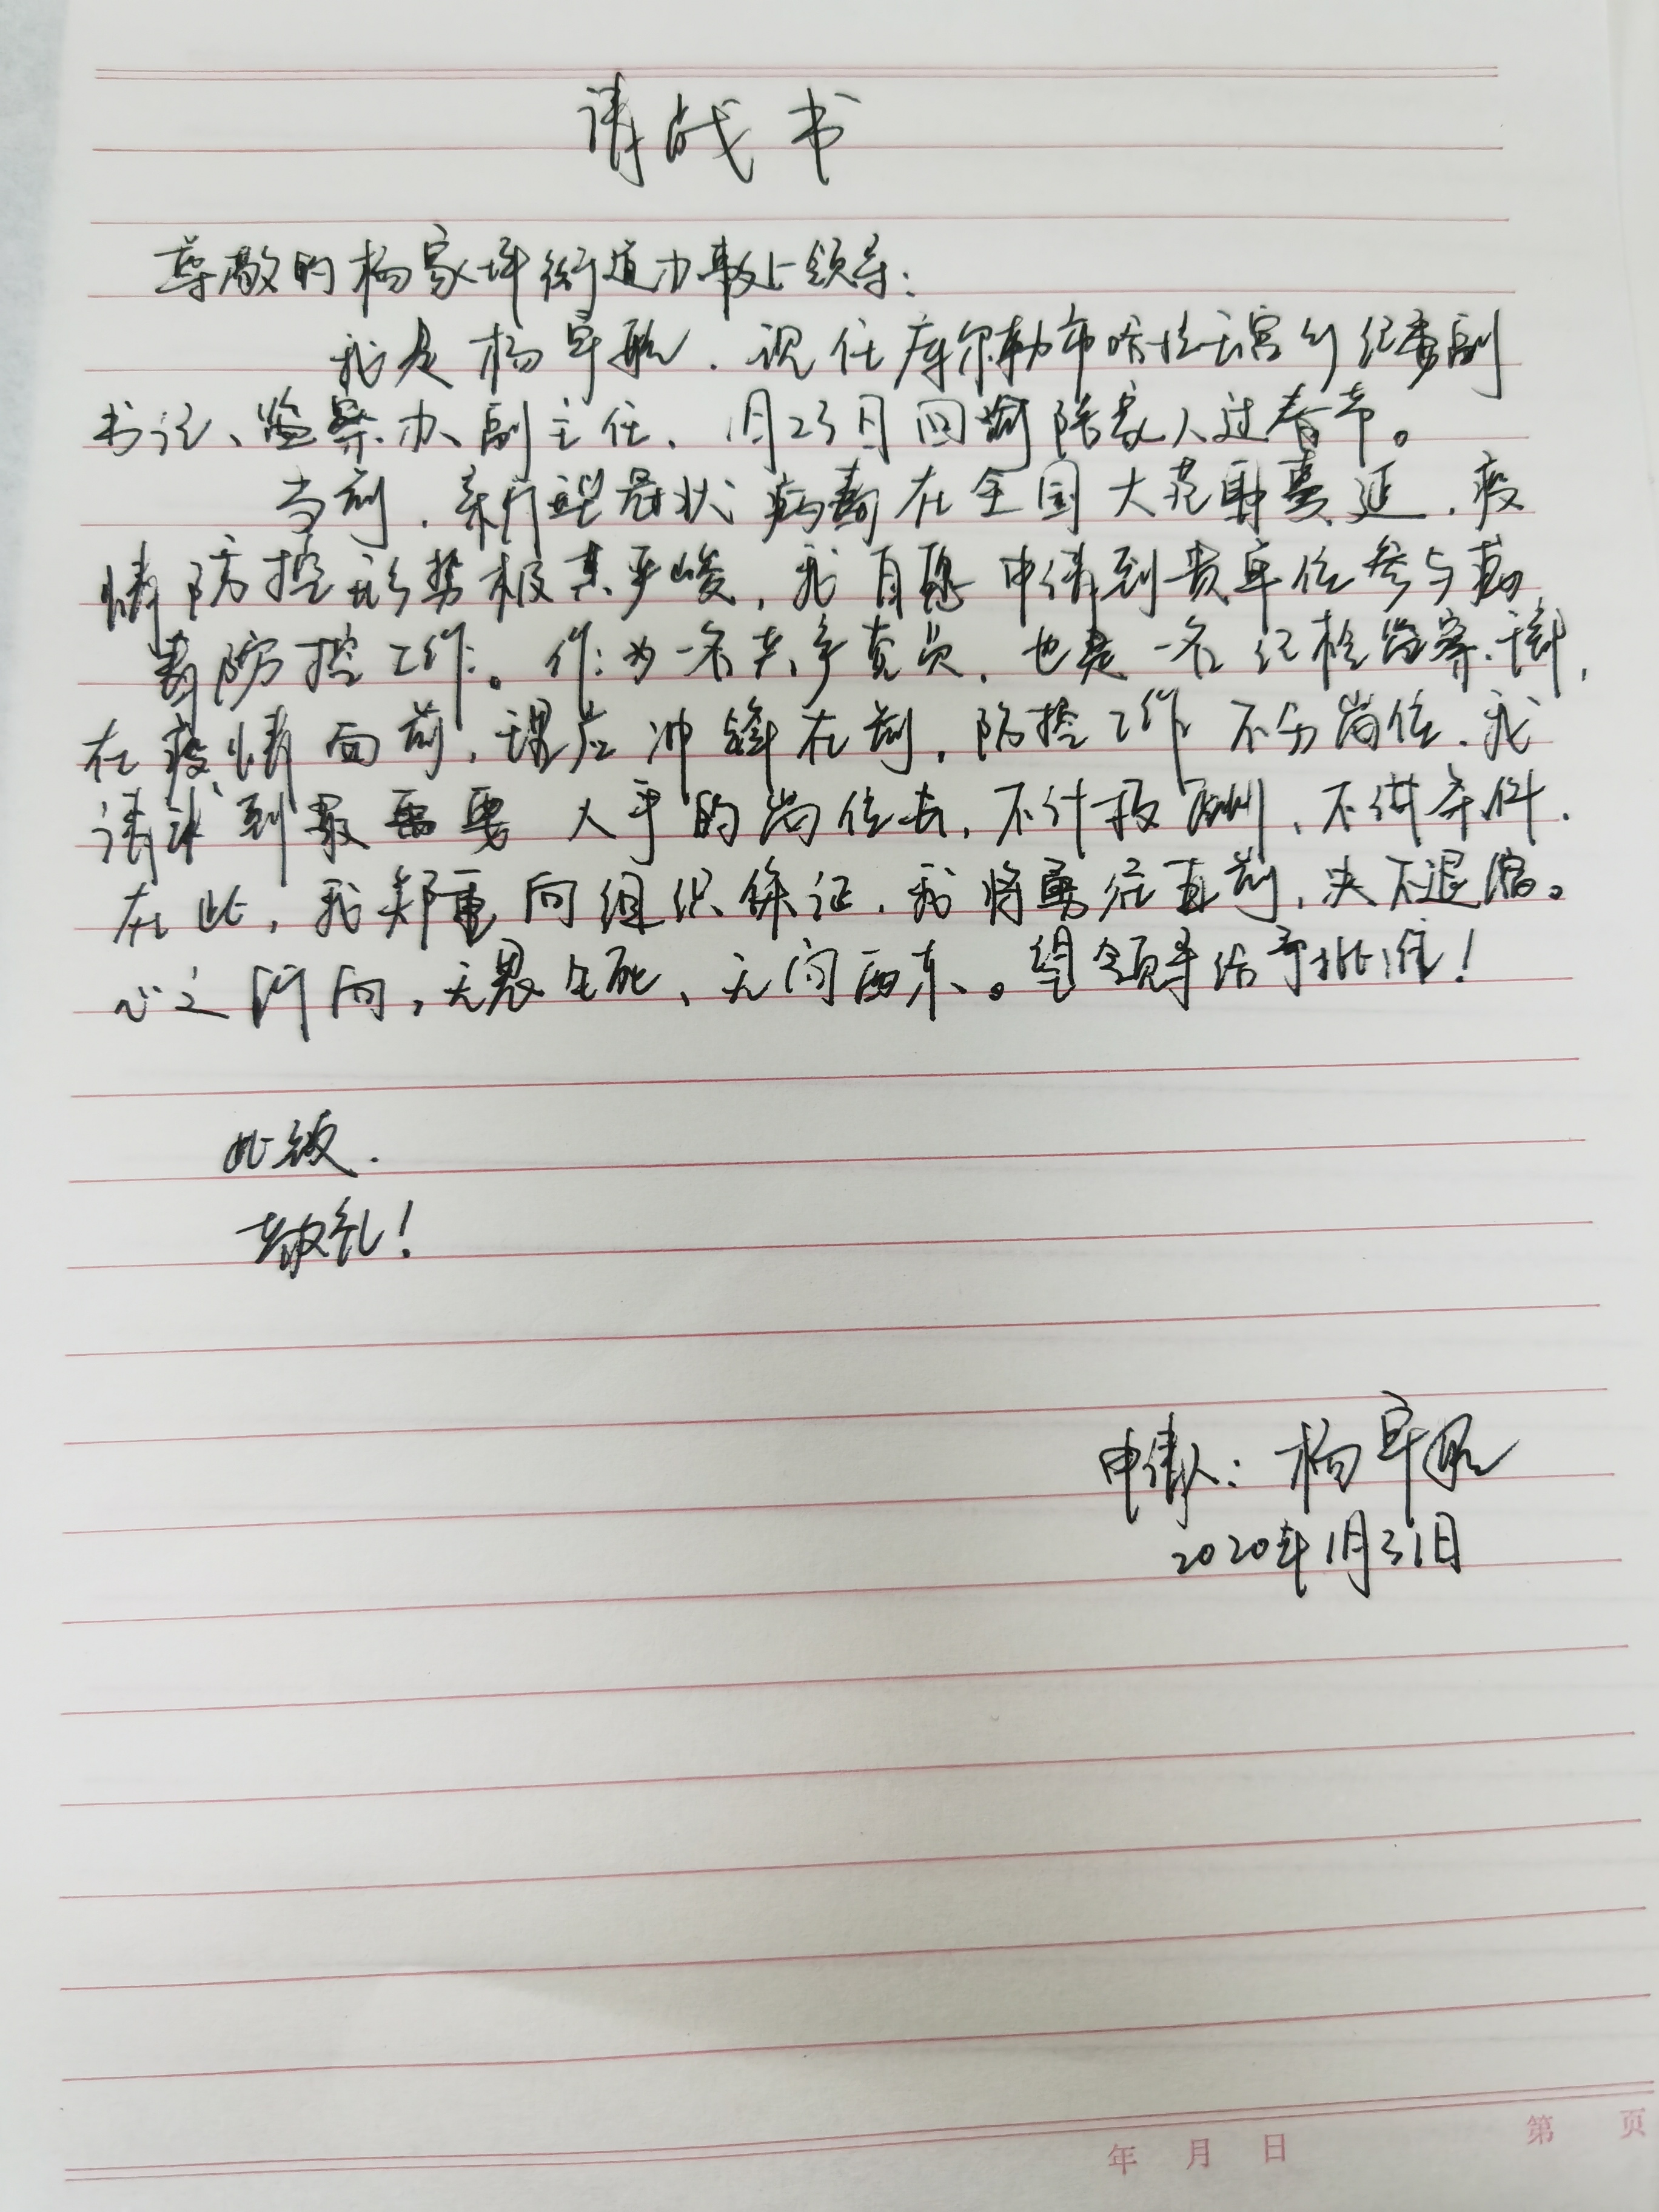 请战书
尊敬的杨家坪街道办事处领导：
我是杨军航，现任库尔勒市哈拉玉宫乡纪委副
书记、监察办副主任，1月23日回渝陪家人过春节。
当前，新型冠状病毒在全国大范围蔓延，疫
情防控形势极其严峻，我自愿申请到贵单位参与
毒防控工作。作为一名共产党员，也是一名纪检监察干部，
在疫情面前，理应冲锋在前，防控工作不分岗位，我
请求到最需要人手的岗位去，不计报酬，不讲条件。
在此，我郑重向组织保证，我将勇往直前，决不退缩。
心之所向，无畏生死、无问西东。望领导给予批准！
此致
敬礼！
申请人：杨军航
2020年1月31日
年 月 日
第 页